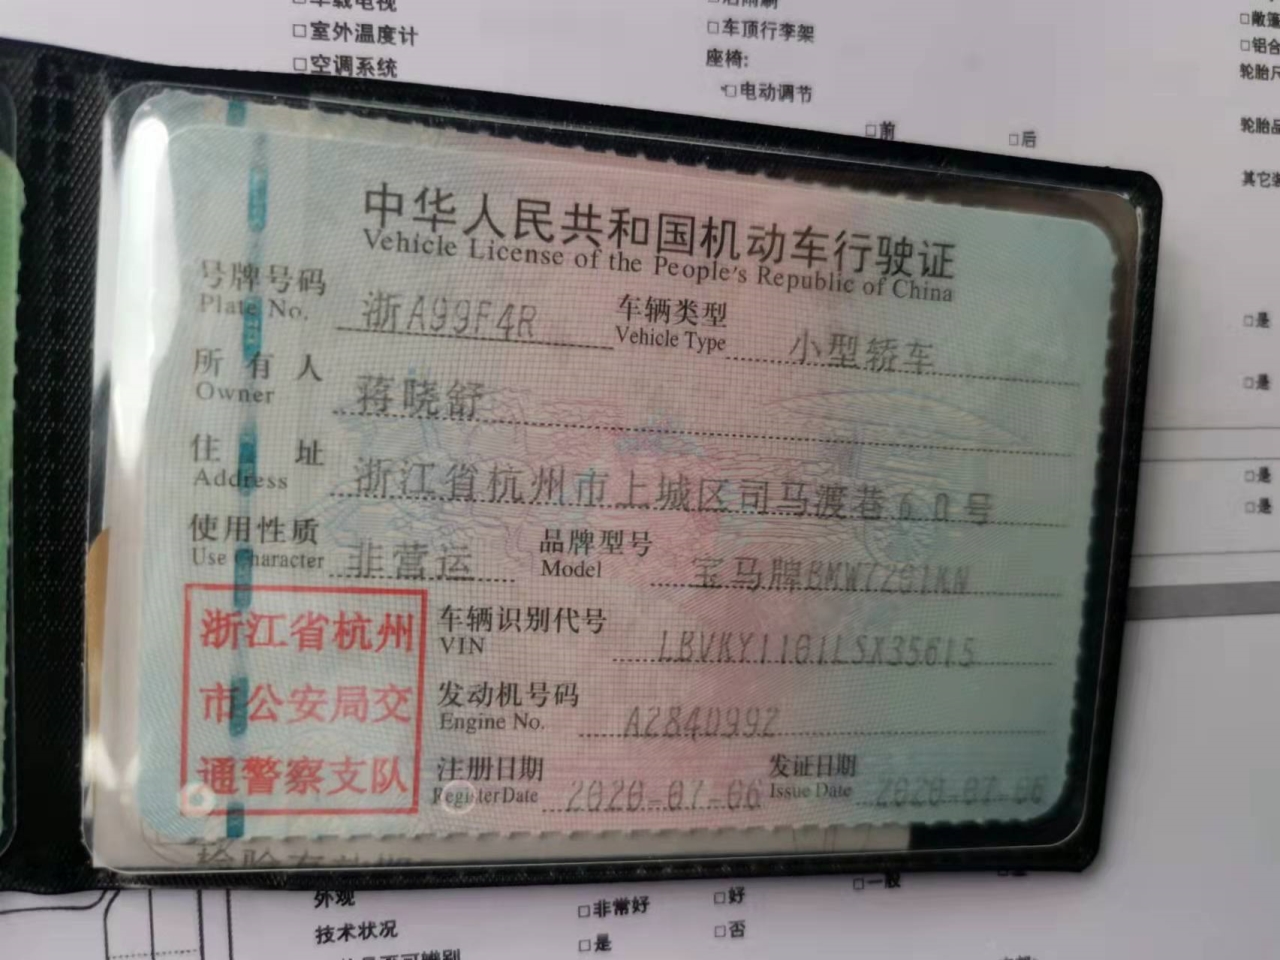 □室外温度计
□空调系统
□车顶行李架
座椅:
□电动调节
□前
□后
中华人民共和国机动车行驶证
Vehicle License of the People's Republic of China
号牌号码 浙A99F4R 车辆类型 小型轿车
Plate No. Vehicle Type
所有人 蒋晓舒
Owner
住址 浙江省杭州市上城区司马渡巷60号
Address
使用性质 非营运 品牌型号 宝马牌BMW7201KN
Use Character Model
浙江省杭州
市公安局交
通警察支队
车辆识别代号
VIN
发动机号码 A2840992
Engine No.
注册日期 2020-07-06 发证日期 2020-07-06
Register Date Issue Date
外观
□非常好
□好
□一般
技术状况
□是
□否
□是
□是
□是
□是